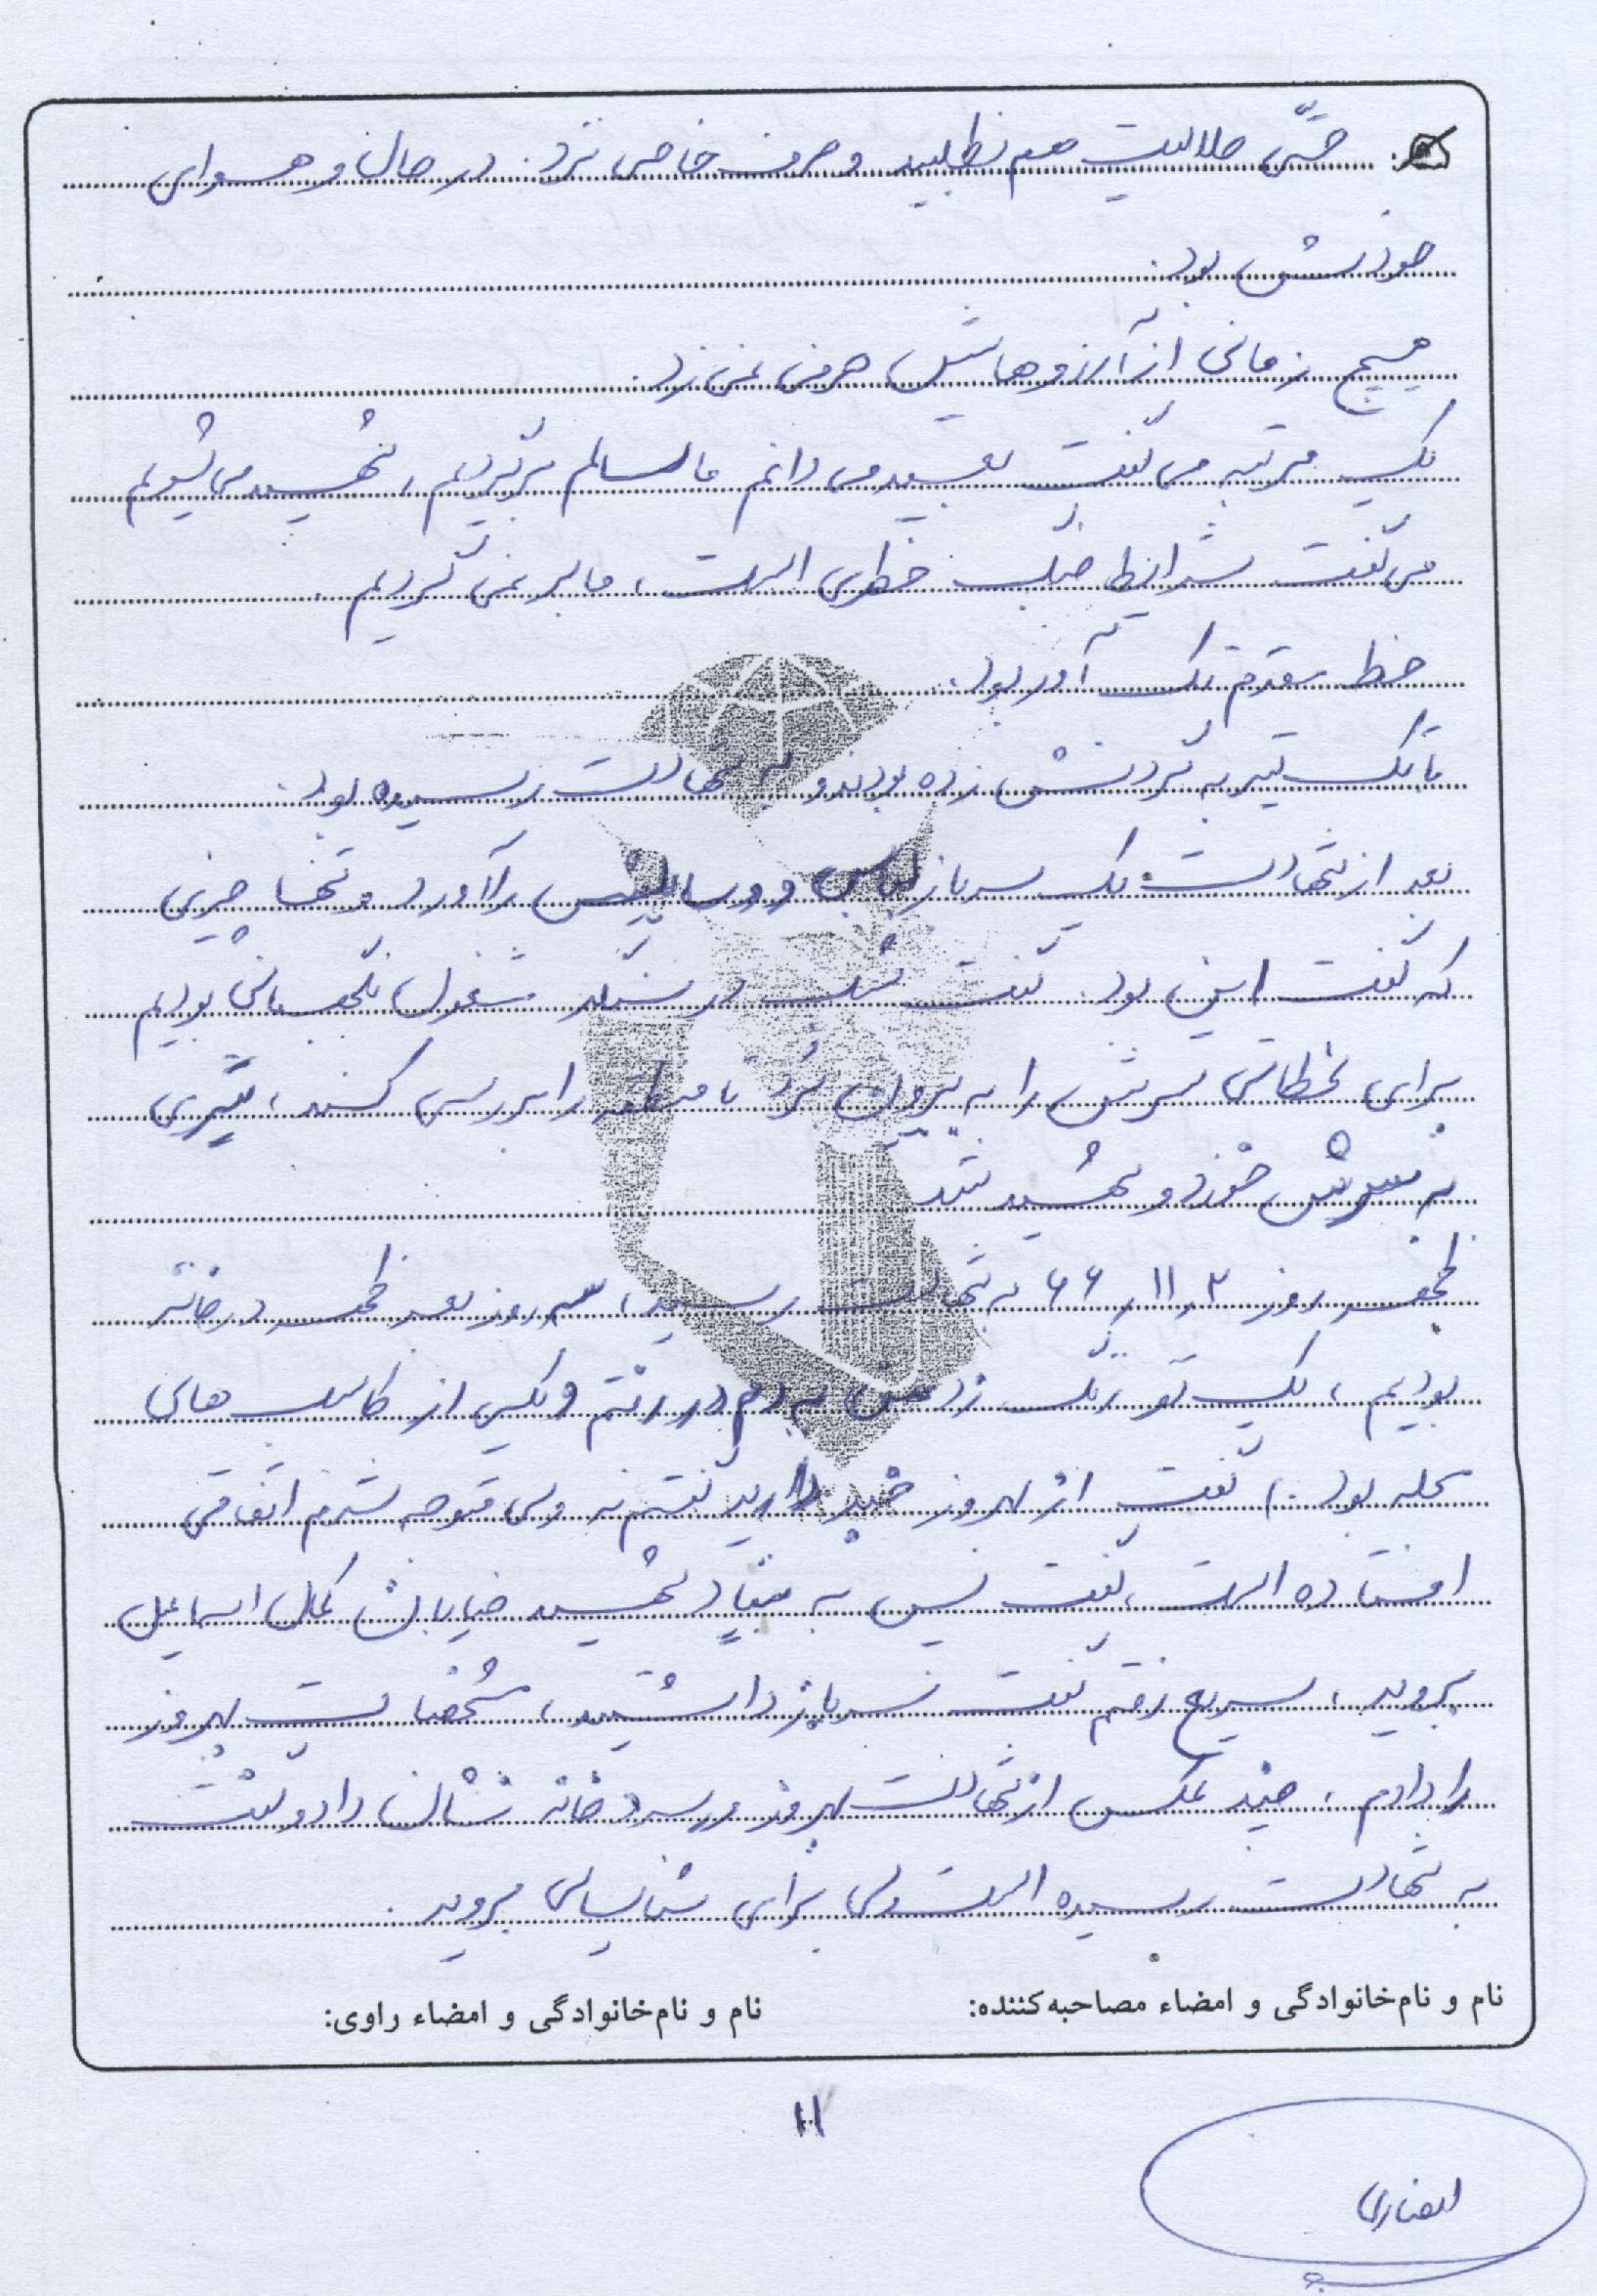 حتّی حلالیت هم نطلبید و حرف خاصی نزد. در حال و هوای
خودش بود.
هیچ زمانی از آرزوهایش حرف نمی زد.
یک مرتبه می گفت بعید می دانم ما سالم برگردیم، شهید می شویم
می گفت شرایط جنگ خطری است، ما بر نمی گردیم.
خط مقدم تک آور بود.
با یک تیر به گردنش زده بودند و به شهادت رسیده بود.
بعد از شهادت یک سرباز لباس و وسایلش را آورد و تنها چیزی
که گفت این بود. گفت شب در سنگر مشغول نگهبانی بودیم
برای لحظاتی سرش را به بیرون برد تا منطقه را بررسی کند، تیری
به سرش خورد و شهید شد
ظهر روز ۶۶/۱۱/۲ به شهادت رسید، سه روز بعد ظهر در خانه
بودیم، یک نفر زنگ زد من به دم در رفتم و یکی از کاسب های
محله بود. گفت از بهروز خبر دارید گفتم نه ولی متوجه شدم اتفاقی
افتاده است، گفت پس به بنیاد شهید خیابان کمال اسماعیل
بروید، سریع رفتم گفت سرباز داشتید، مشخصات بهروز
را دادم، چند عکس از شهادت بهروز در سردخانه نشان داد و گفت
به شهادت رسیده است ولی برای شناسایی بروید.
نام و نام‌خانوادگی و امضاء مصاحبه‌کننده: نام و نام‌خانوادگی و امضاء راوی:
۱۱
انصاری